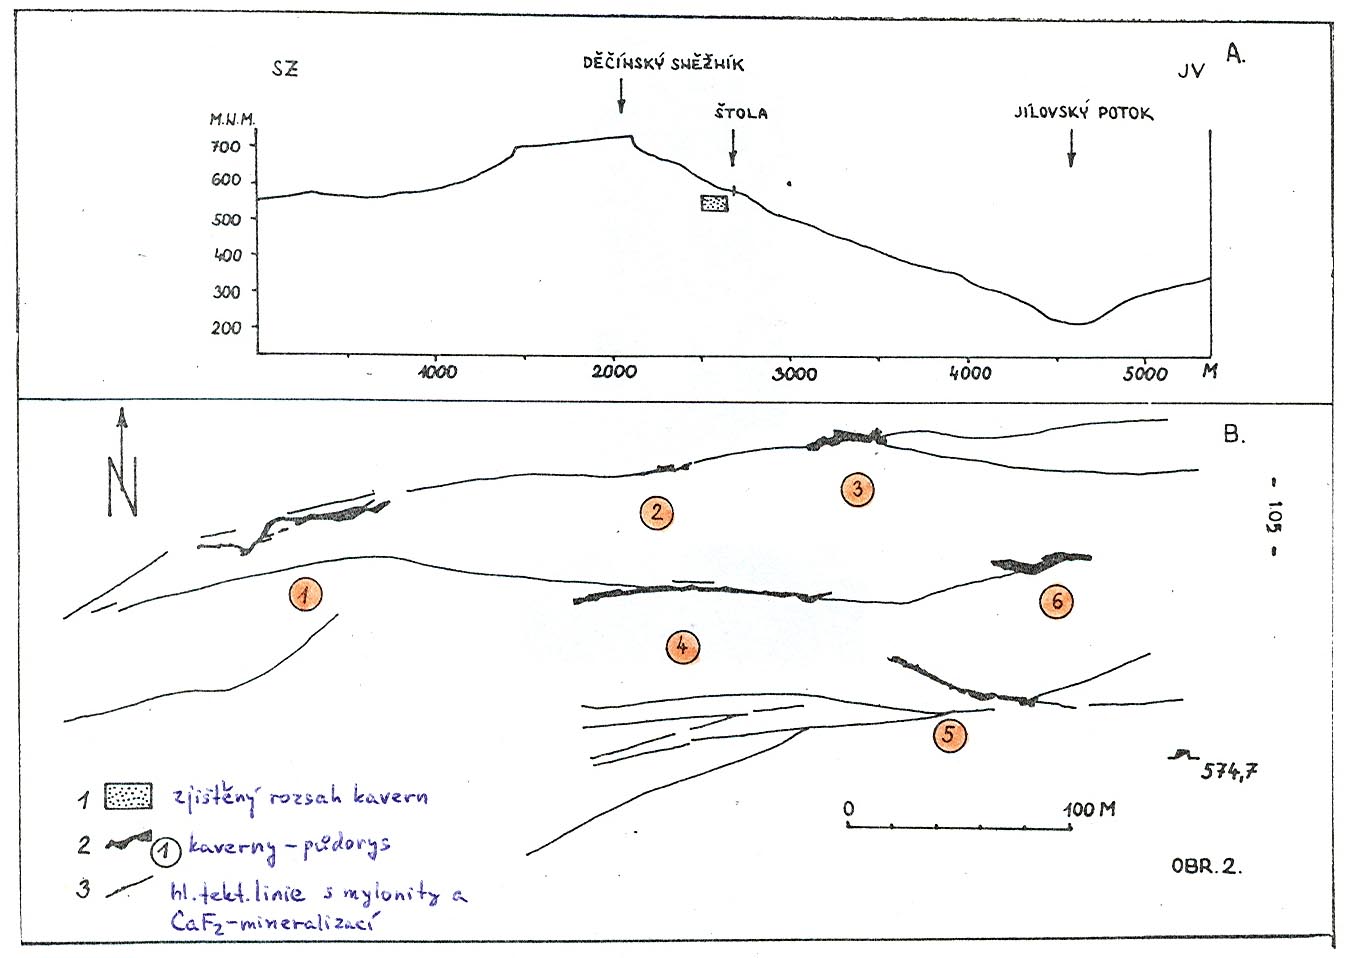 A.
SZ
DĚČÍNSKÝ SNĚŽNÍK
JV
ŠTOLA
JÍLOVSKÝ POTOK
M.N.M.
700
600
500
400
300
200
1000
2000
3000
4000
5000
M
B.
N
3
2
- 105 -
1
6
4
5
574,7
0
100 M
1
zjištěný rozsah kavern
2
1
kaverny - půdorys
3
hl. tekt. linie s mylonity a
CaF2-mineralizací
OBR. 2.